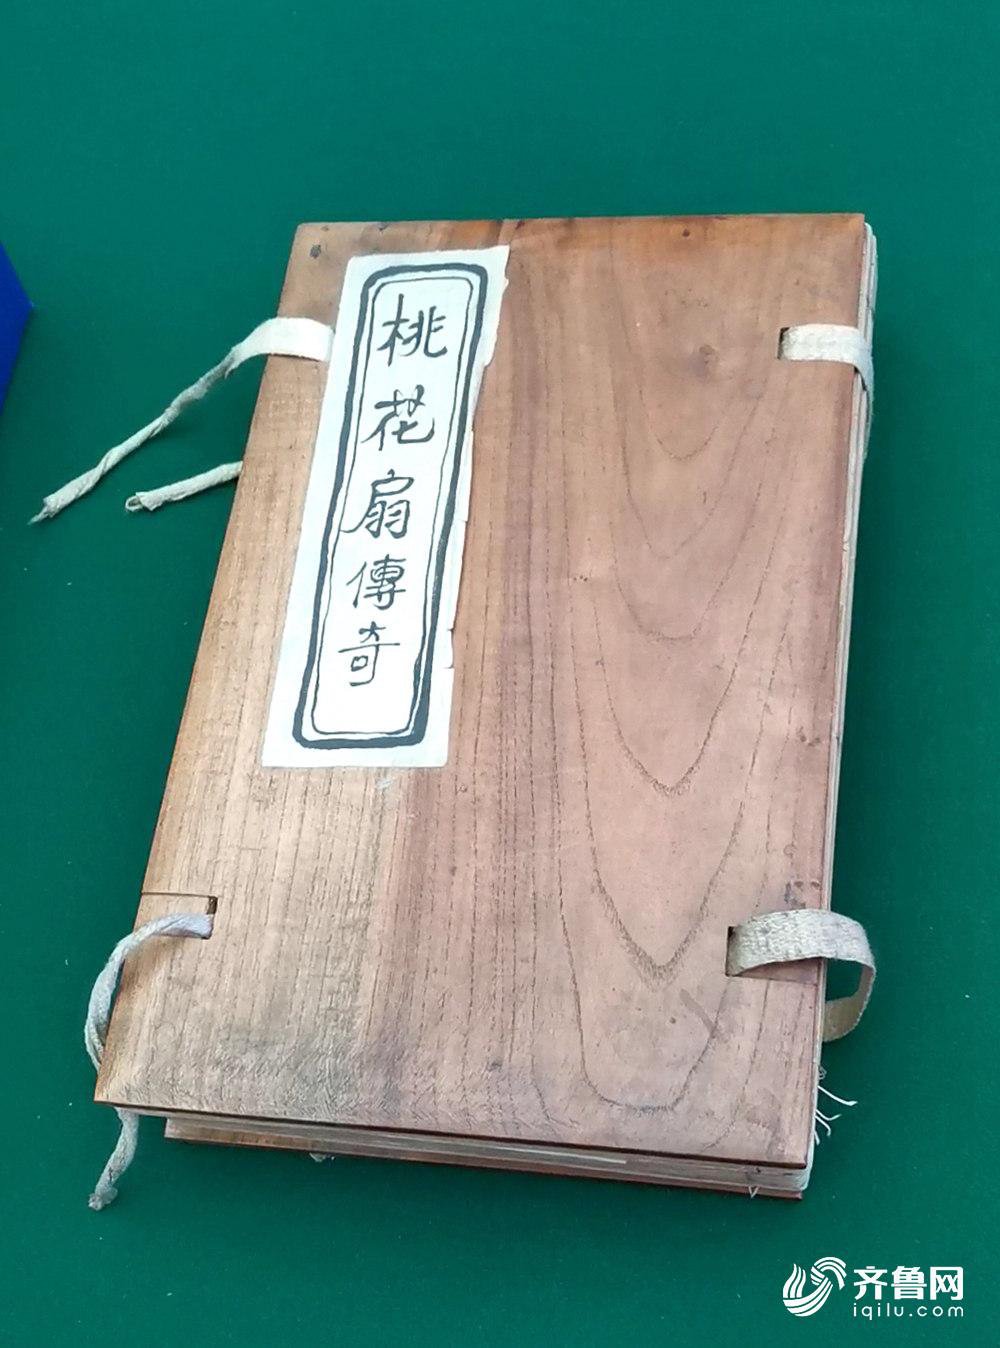 桃花扇傳奇
齐鲁网
iqilu.com